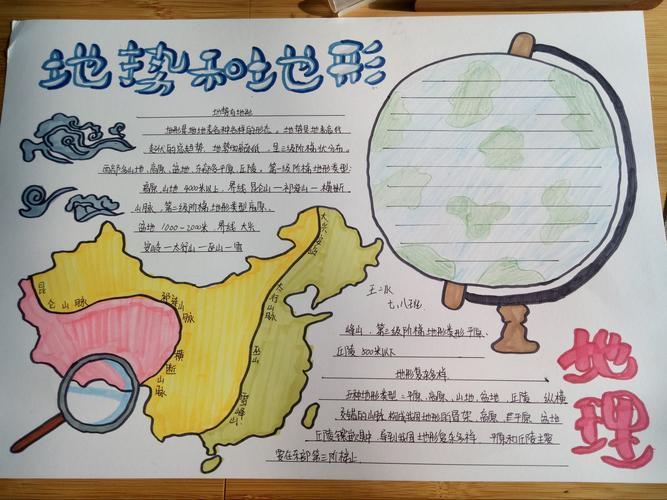 地势和地形
地势与地形
地形是地表各种各样的形态。地势是地表高低
起伏的总趋势。地势西高东低，呈三级阶梯状分布。
西部多山地、高原、盆地，东部多平原、丘陵。第一级阶梯地形类型：
高原、山地 4000米以上，界线 昆仑山－祁连山－横断
山脉。第二级阶梯地形类型 高原、
盆地 1000－2000米 界线 大兴
安岭－太行山－巫山－雪
大兴安岭
昆仑山脉
祁连山脉
横断山脉
太行山脉
巫山
雪峰山
七、八班
峰山，第三级阶梯地形类形平原、
丘陵 500米以下
地形复杂多样
五种地形类型：平原、高原、山地、盆地、丘陵 纵横
交错的山脉，构成我国地形的骨架，高原、平原、盆地
丘陵镶嵌其中，导到我国地形复杂多样，平原和丘陵主要
要在东部第三阶梯上
地理